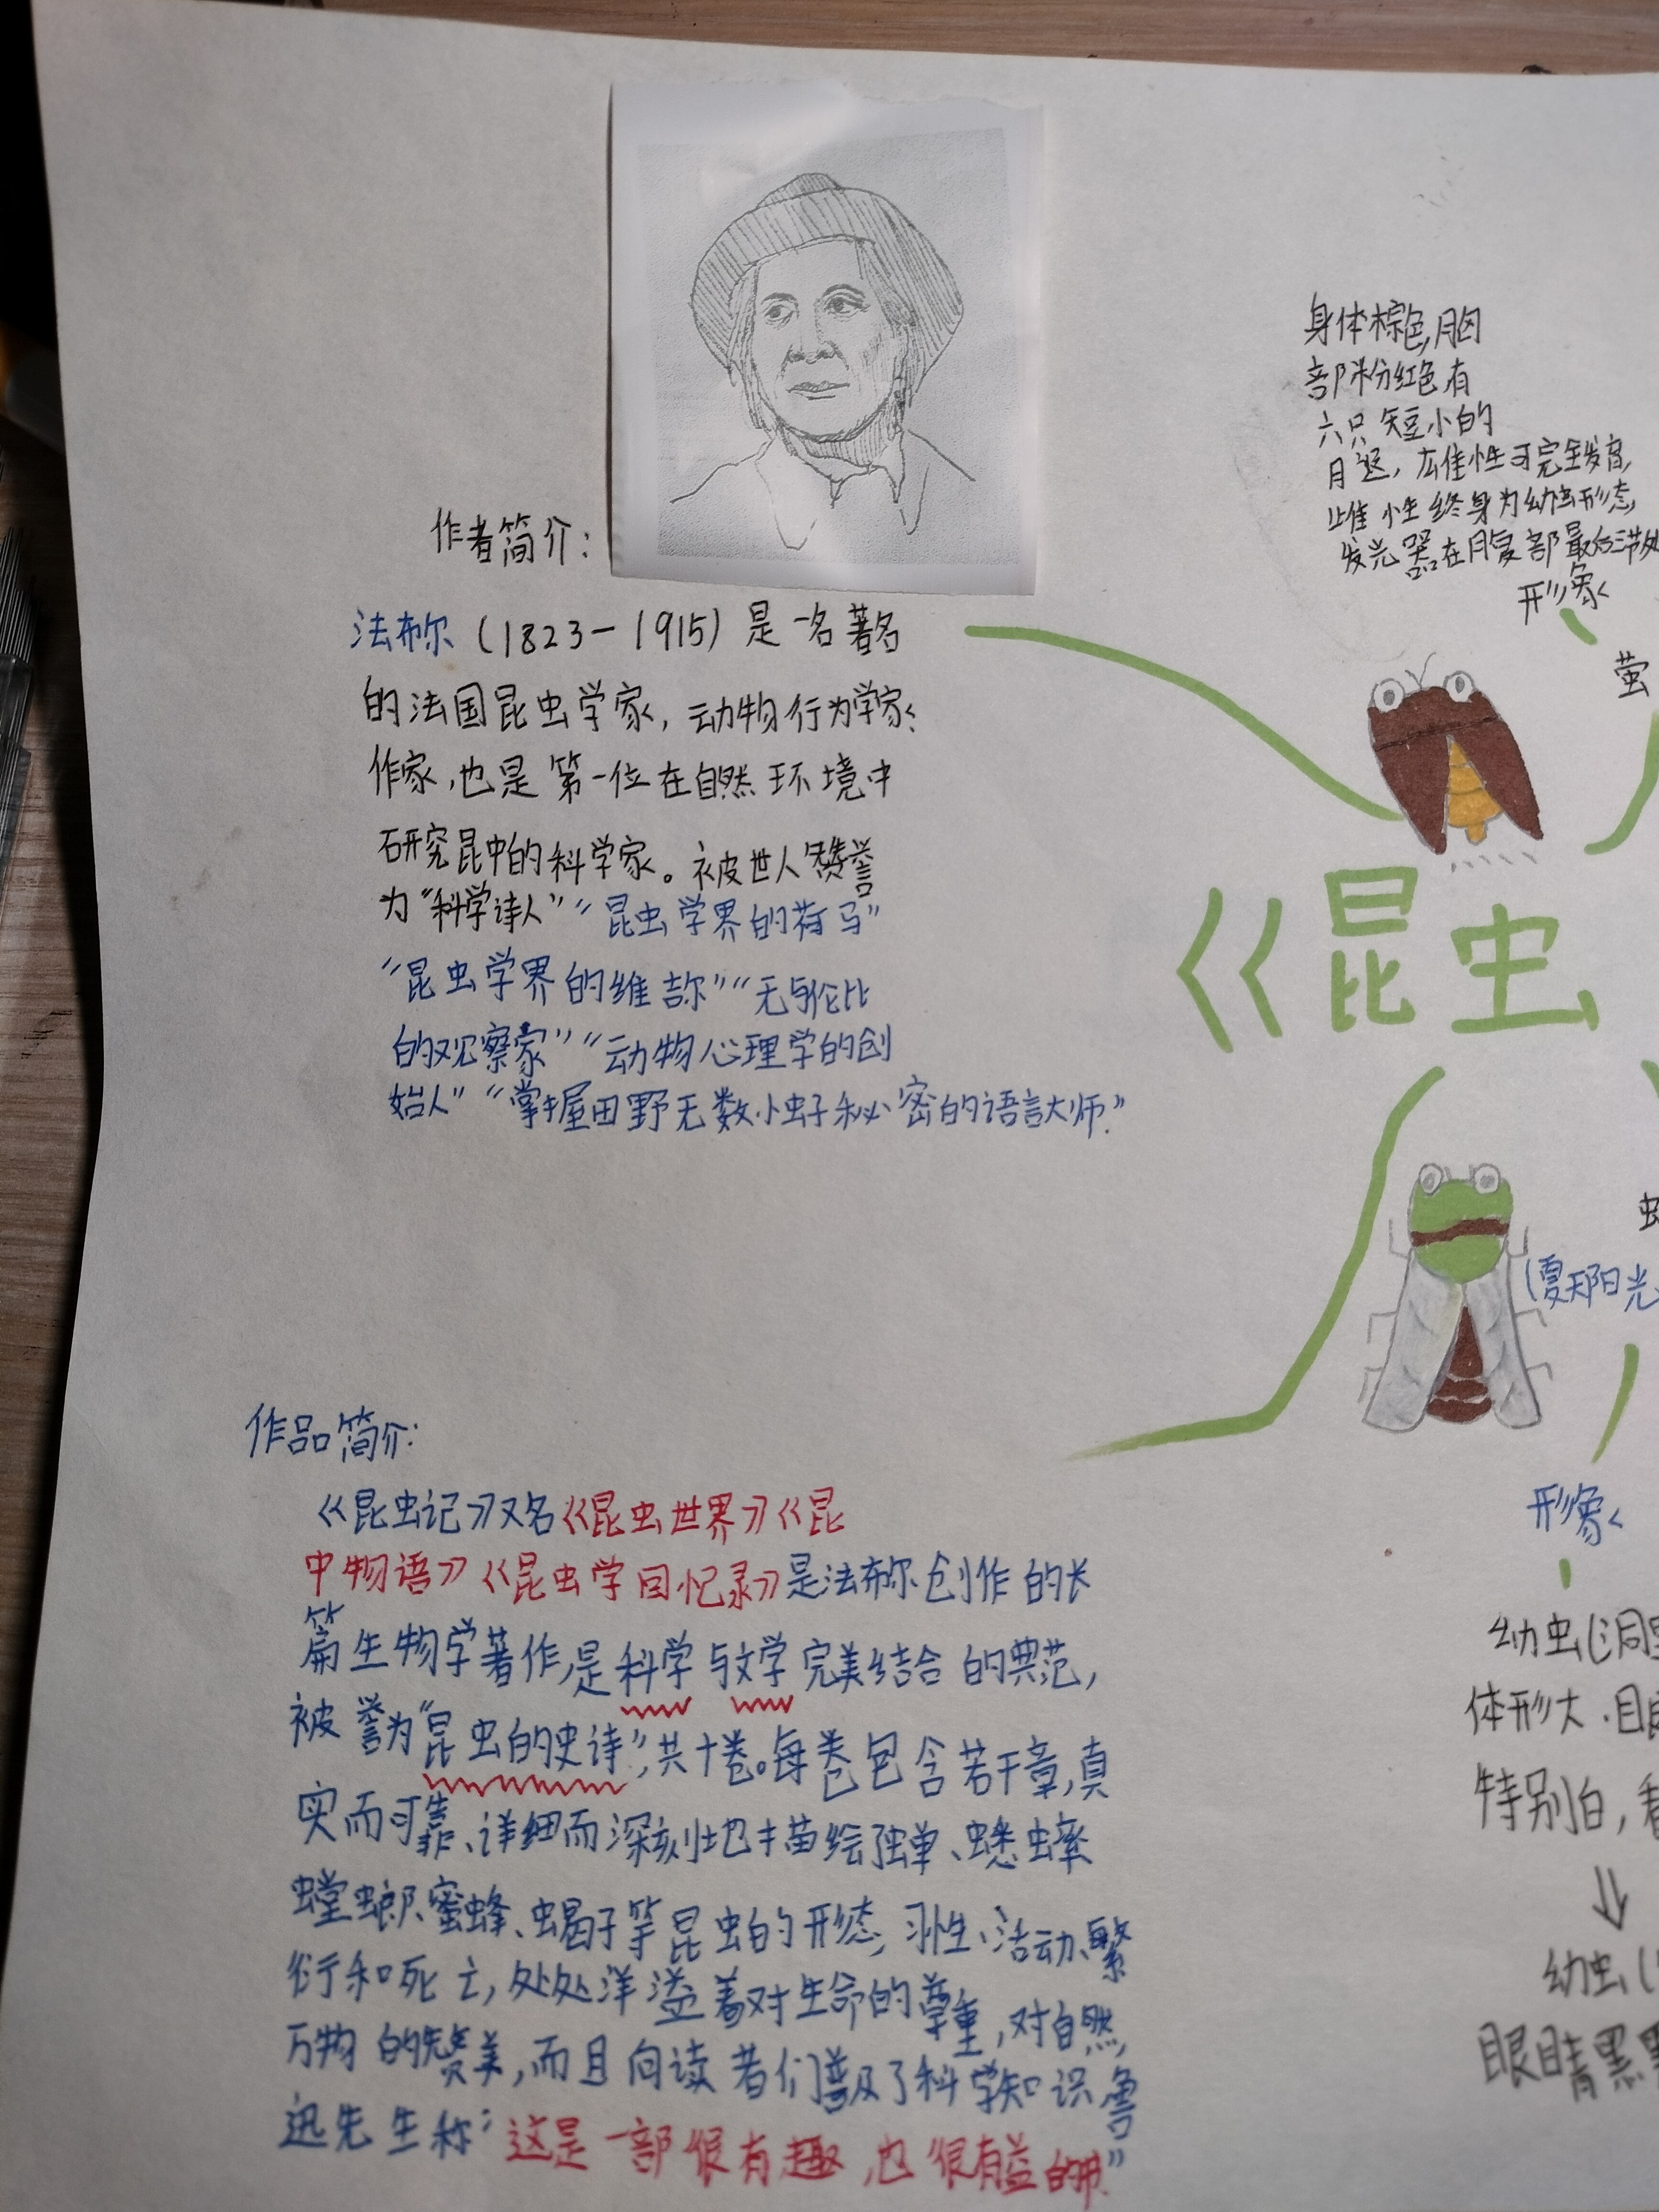 作者简介：
法布尔（1823－1915）是一名著名
的法国昆虫学家，动物行为学家、
作家，也是第一位在自然环境中
研究昆中的科学家。被世人赞誉
为“科学诗人”“昆虫学界的荷马”
“昆虫学界的维吉尔”“无与伦比
的观察家”“动物心理学的创
始人”“掌握田野无数小虫子秘密的语言大师.”
作品简介：
《昆虫记》又名《昆虫世界》《昆
中物语》《昆虫学回忆录》是法布尔创作的长
篇生物学著作,是科学与文学完美结合的典范,
被誉为“昆虫的史诗”,共十卷。每卷包含若干章,真
实而可靠、详细而深刻地描绘、蟋蟀
螳螂、蜜蜂、蝎子等昆虫的形态,习性、活动、繁
衍和死亡,处处洋溢着对生命的尊重,对自然,
万物的赞美,而且向读者们普及了科学知识鲁
迅先生称：“这是一部很有趣,也很有益的书.”
身体棕色,胸
部粉红色有
六只短小的
腿，雄性可完全发育,
雌性终身为幼虫形态,
发光器在腹部最后三节处
形象
萤
《昆虫
(夏天阳光
形象
幼虫(洞
体形大.
特别白,看
⇓
幼虫(
眼睛黑黑